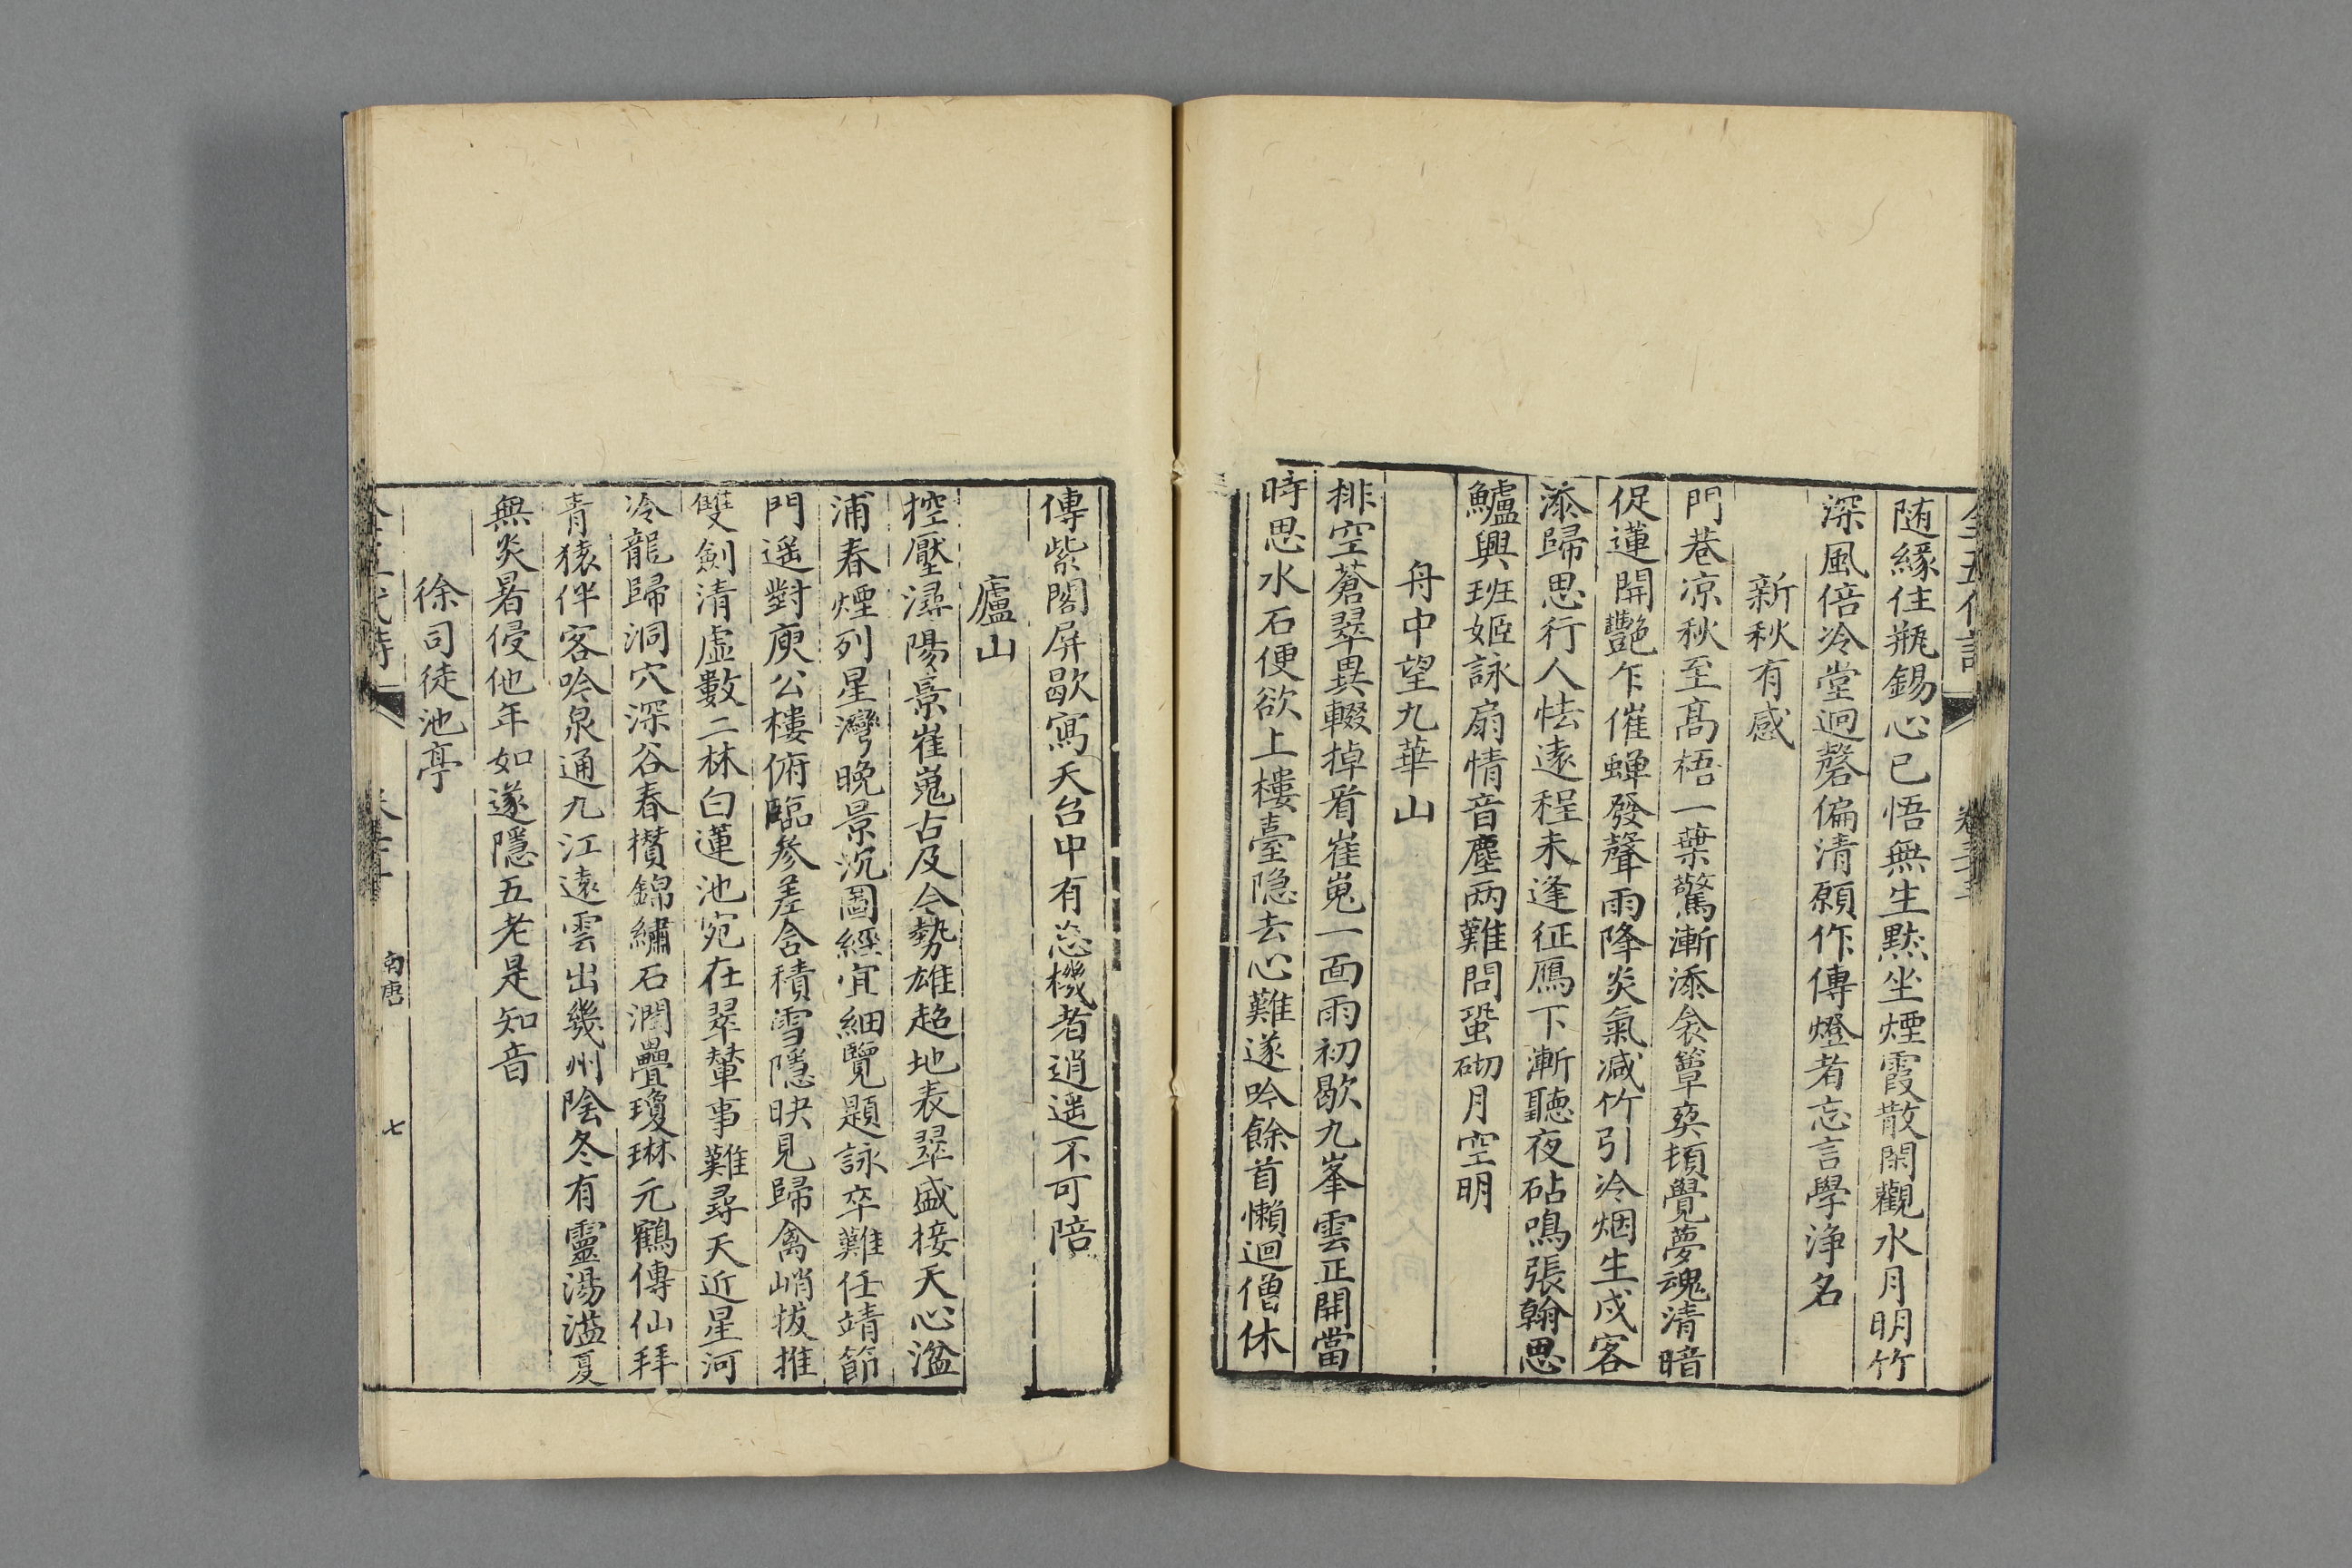 随緣住瓶錫心已悟無生默坐煙霞散閑觀水月明竹
深風倍冷堂迥磬偏清願作傳燈者忘言學淨名
新秋有感
門巷凉秋至高梧一葉驚漸添衾簟爽頓覺夢魂清暗
促蓮開艷乍催蟬發聲雨降炎氣減竹引冷烟生戍客
添歸思行人怯遠程未逢征鴈下漸聽夜砧鳴張翰思
鱸興班姬詠扇情音塵两難問蛩砌月空明
舟中望九華山
排空蒼翠異輟掉看崔嵬一面雨初歇九峯雲正開當
時思水石便欲上樓臺隐去心難遂吟餘首懶迴僧休
傳紫閣屏歇寫天台中有忘機者逍遥不可陪
廬山
控壓潯陽景崔嵬古及今勢雄超地表翠盛接天心湓
浦春煙列星灣晚景沉圖經宜細覽題詠卒難任靖節
門遥對庾公樓俯臨參差含積雪隱映見歸禽峭拔推
雙劍清虛數二林白蓮池宛在翠輦事難尋天近星河
冷龍歸洞穴深谷春攢錦繡石潤疊瓊琳元鶴傳仙拜
青猿伴客吟泉通九江遠雲出幾州陰冬有靈湯溢夏
無炎暑侵他年如遂隱五老是知音
徐司徒池亭
南唐
七